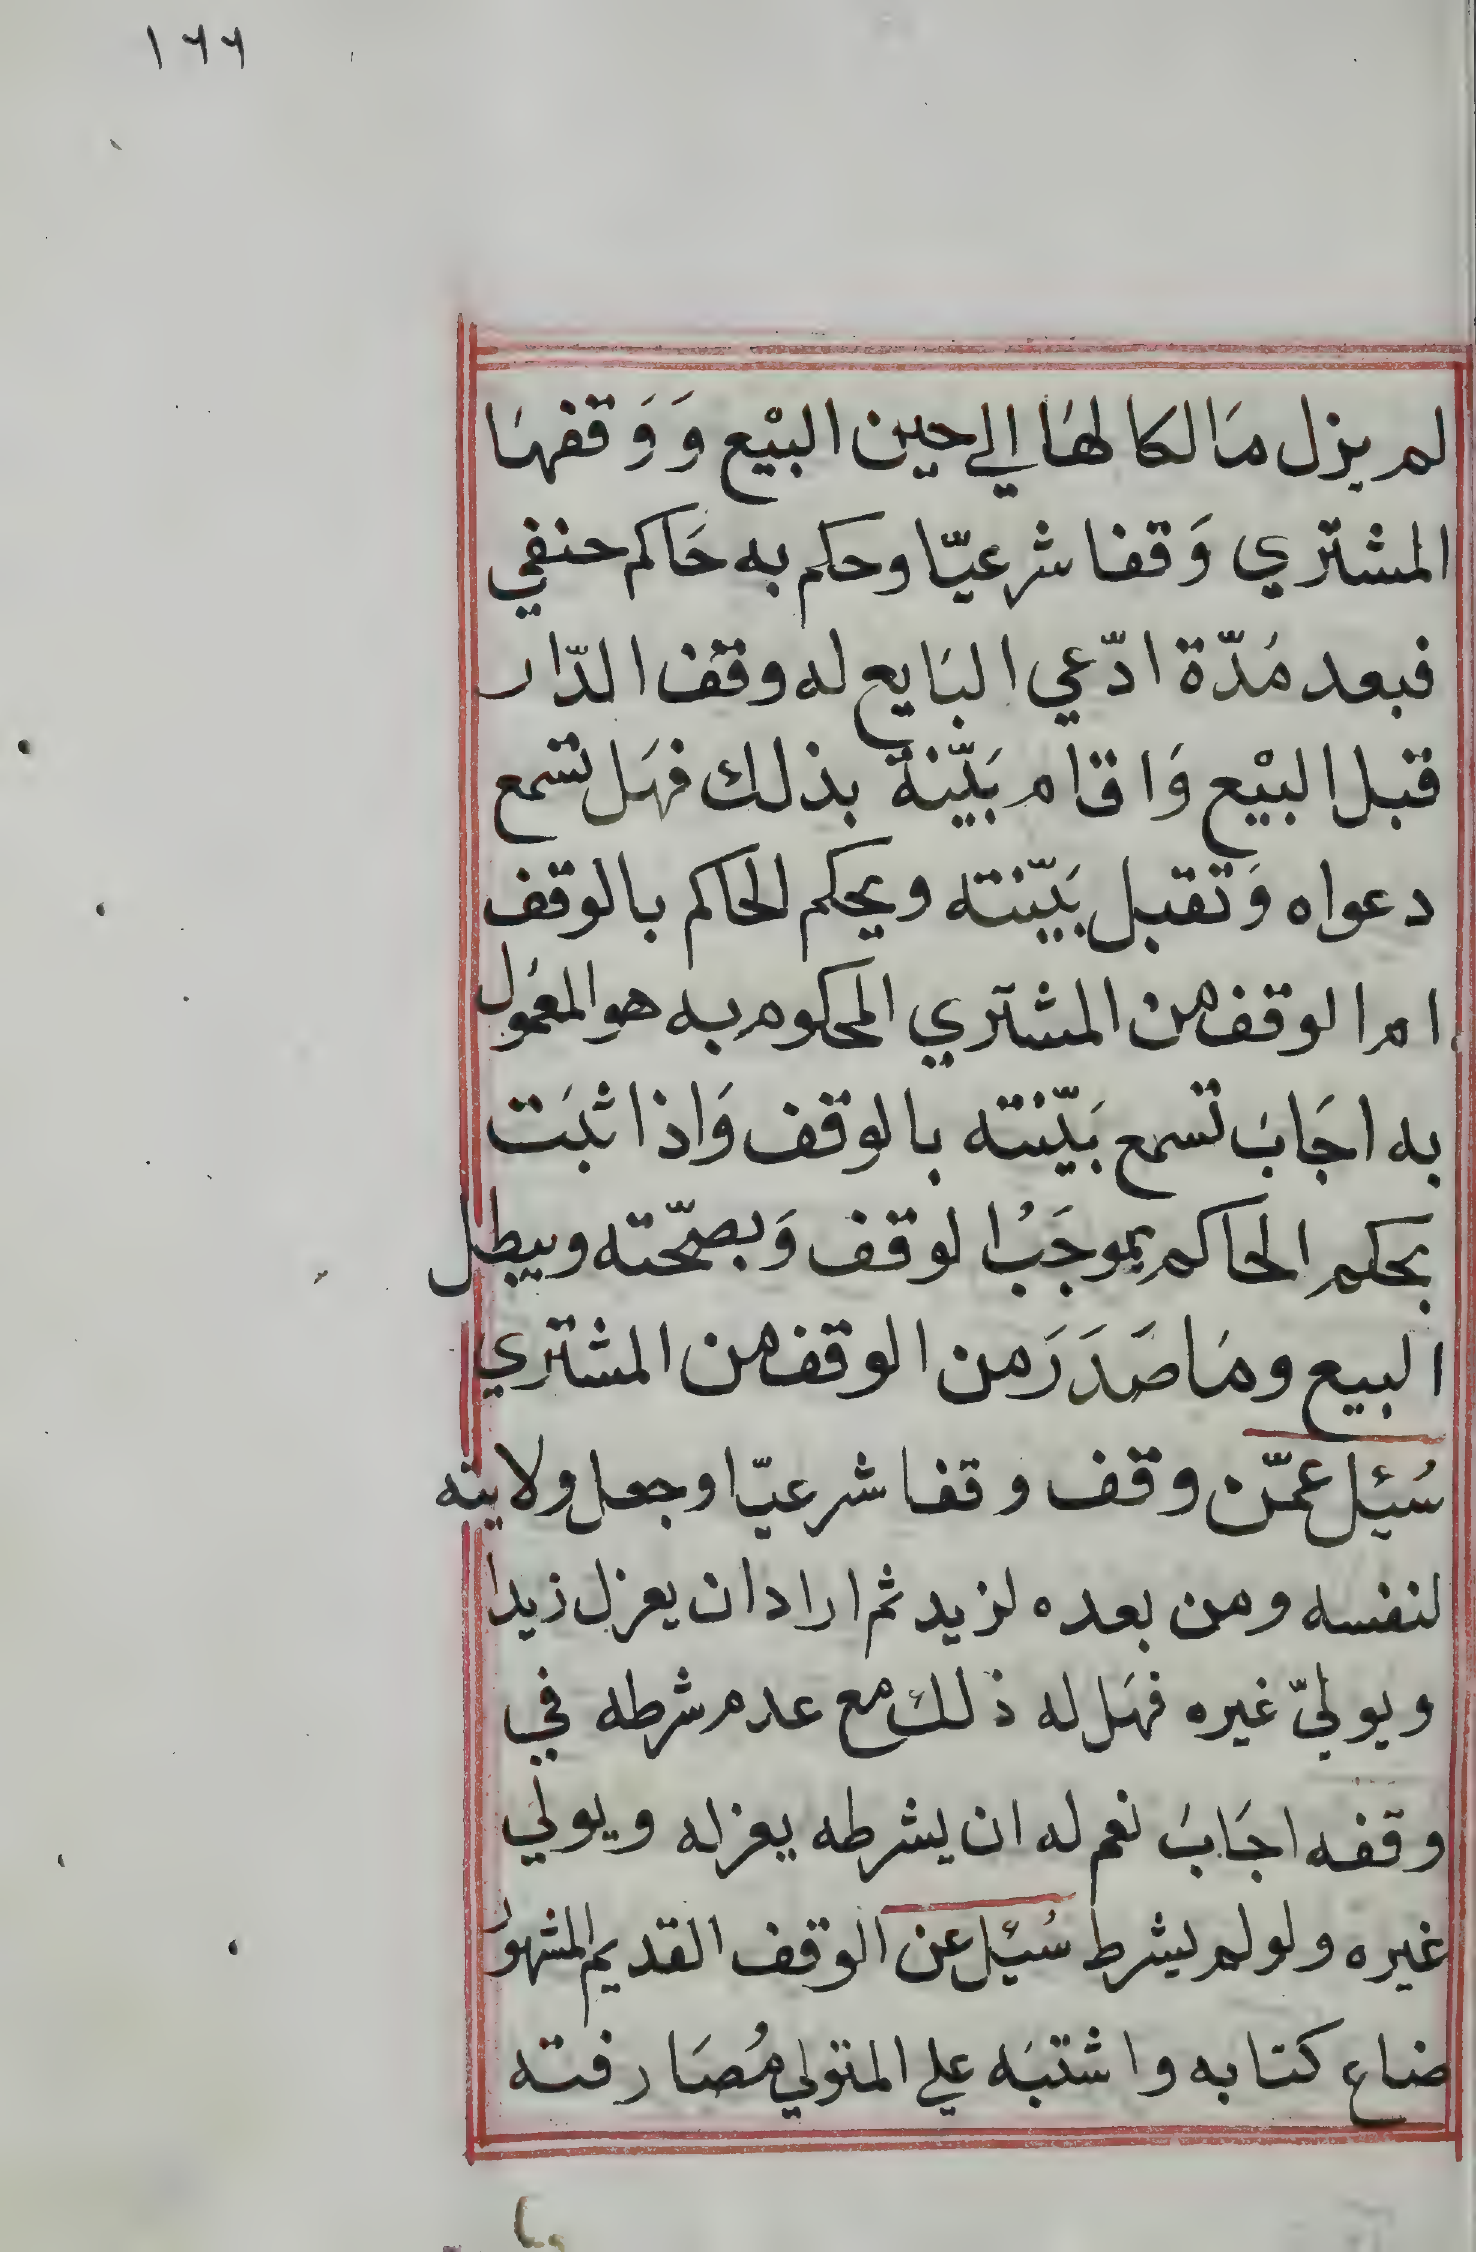 ١٦٦
لم يزل مَالكا لهَا إلي حين البيْع وَوَقفهَا
المشتري وَقفا شرعيّا وحكم به حَاكم حنفي
فبعد مُدّة ادّعي البَايع له وقف الدّار
قبل البيْع وَاقام بَيّنة بذلك فهَل تسمع
دعواه وَتقبل بَيّنته ويحكم الحاكم بالوقف
ام الوقف من المشتري المحكوم به هو المعمُول
به اجَابَ تسمع بَيّنته بالوقف وَاذا ثبَت
يحكم الحاكم بموجَبُ الوقف وَبصحّته ويبطل
البيع ومَا صَدَرَ من الوقف من المشتري
سُئل عمّن وقف وقفا شرعيّا وجعل ولايته
لنفسه ومن بعده لزيد ثم اراد ان يعزل زيدا
ويوليّ غيره فهَل له ذلك مع عدم شرطه في
وقفه اجَابَ نعم له ان يشرطه يعزله ويولي
غيره ولو لم يشرط سُئل عن الوقف القديم المشهور
ضاع كتابه واشتبَه علي المتولي مُصَارفته